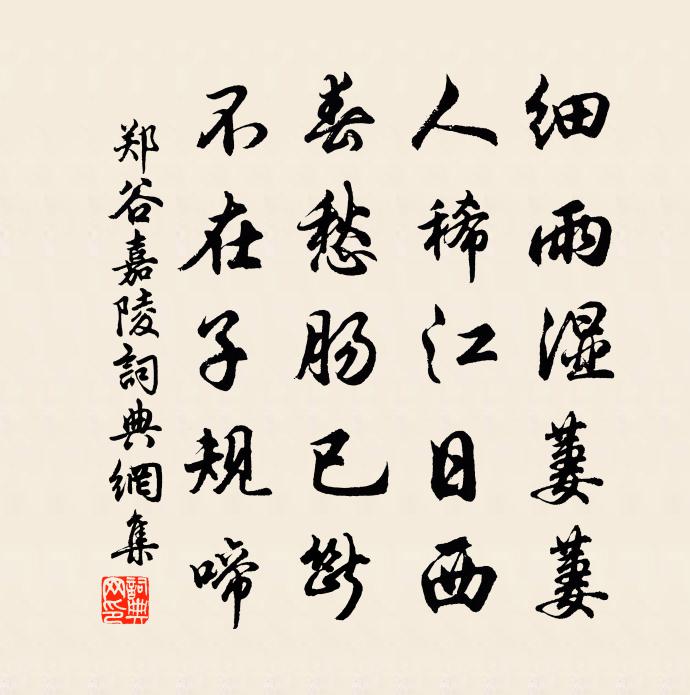 细雨湿萋萋
人稀江日西
春愁肠已断
不在子规啼
郑谷嘉陵詞典網集
詞典网印